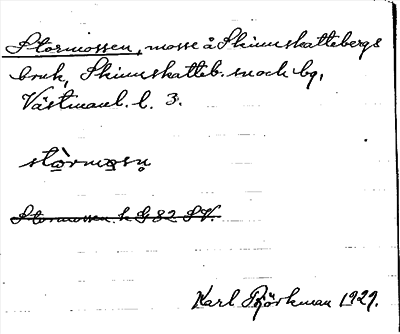 Stormossen, mosse å Skinnskattebergs
bruk, Skinnskatteb. snock bg,
Västmanl. l. 3.
stòrmosn̥
Stormossen k G 82 SV.
Karl Björkman 1929.